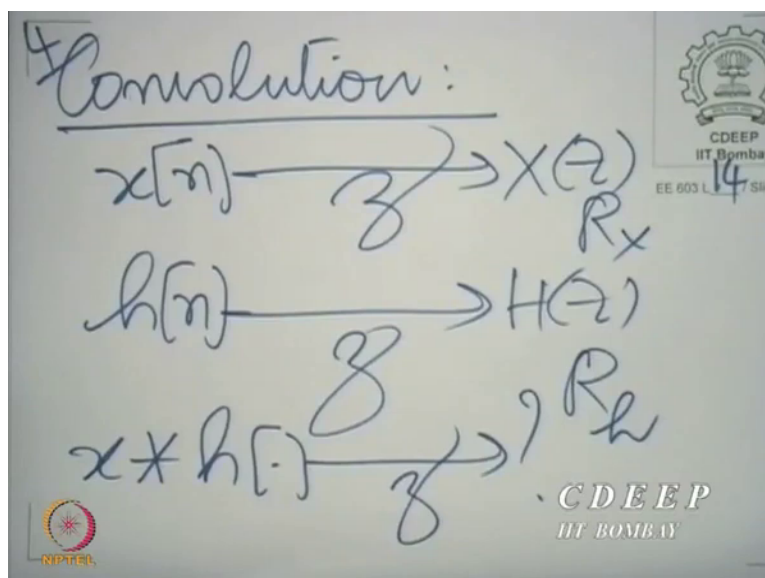 4 Convolution :
x[n] → X(z)
z
R_x
h[n] → H(z)
z
R_h
x * h[·] → ?
z
CDEEP
IIT Bombay
EE 603 L 14 / Sli
CDEEP
IIT BOMBAY
NPTEL